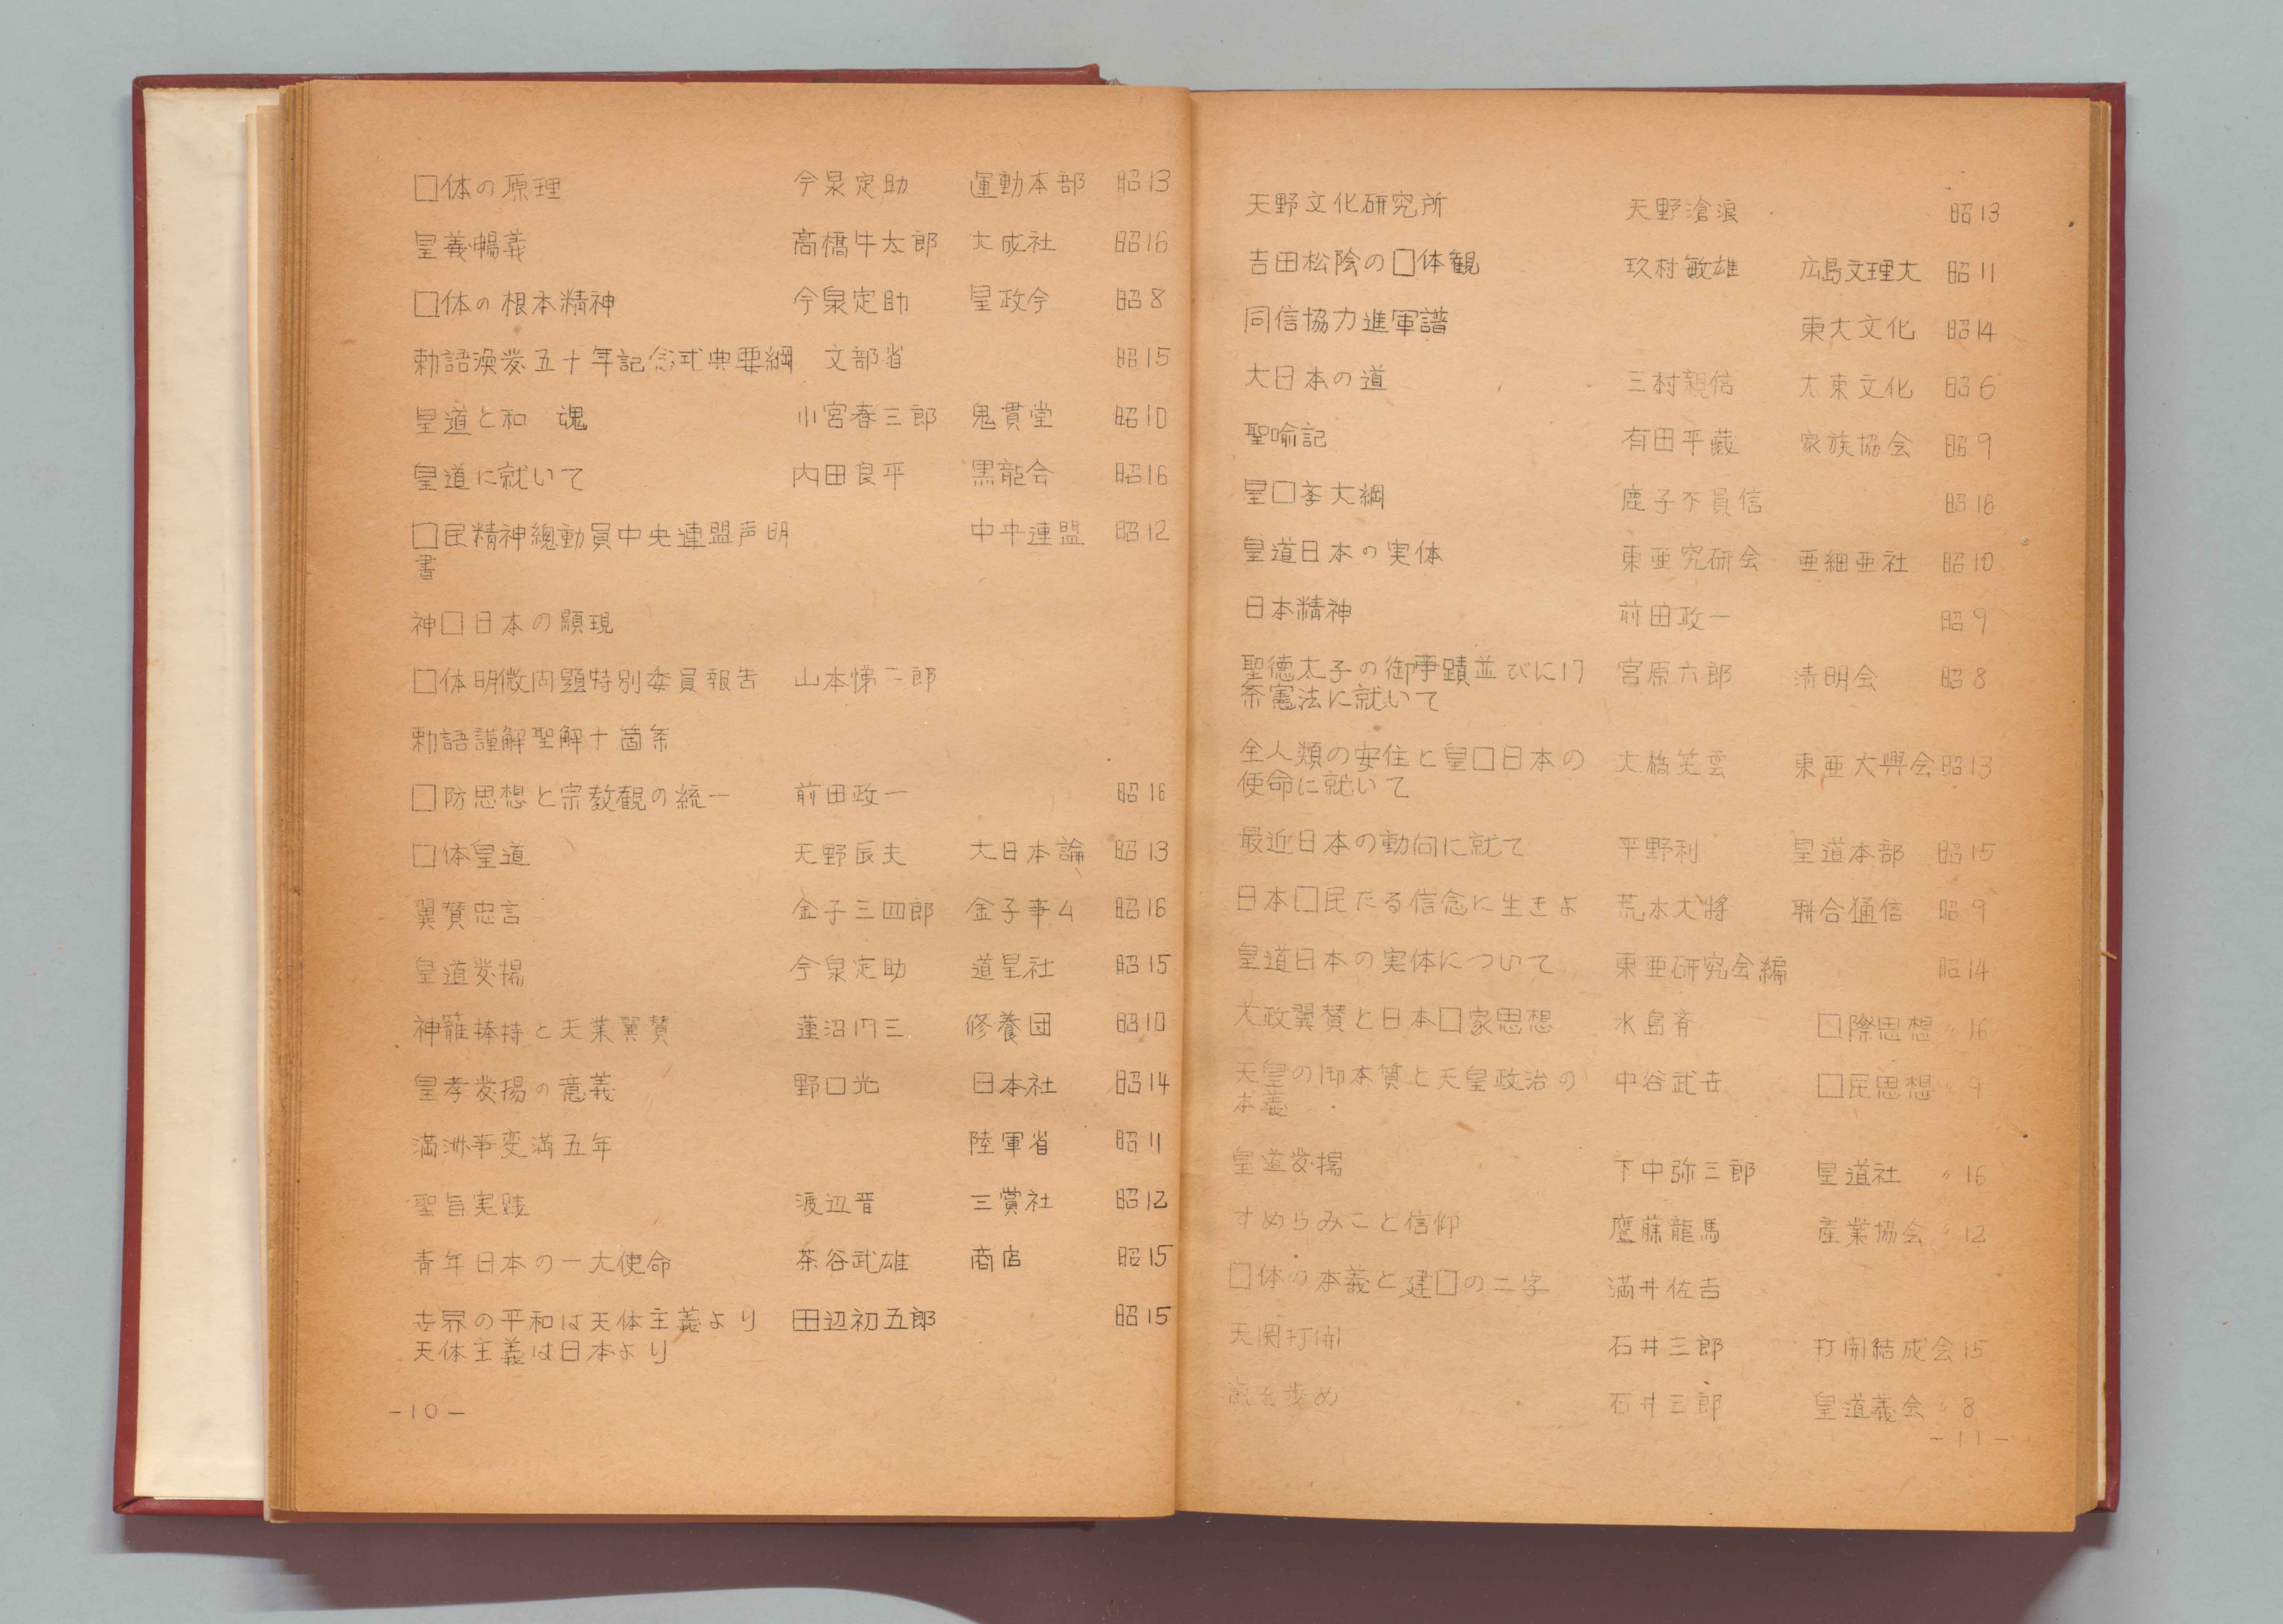 口体の原理 今泉定助 運動本部 昭13
皇義暢義 高橋牛太郎 大成社 昭16
口体の根本精神 今泉定助 皇政今 昭8
勅語渙発五十年記念式典要綱 文部省 昭15
皇道と和 魂 小宮春三郎 鬼貫堂 昭10
皇道に就いて 内田良平 黒龍会 昭16
口民精神總動員中央連盟声明 中央連盟 昭12
書
神口日本の顕現
口体明徴問題特別委員報告 山本悌二郎
勅語謹解聖解十箇条
口防思想と宗教観の統一 前田政一 昭16
口体皇道 天野辰夫 大日本論 昭13
翼賛忠言 金子三四郎 金子事ム 昭16
皇道発揚 今泉定助 道星社 昭15
神籬捧持と天業翼賛 蓮沼門三 修養団 昭10
皇孝発揚の意義 野口光 日本社 昭14
満洲事変満五年 陸軍省 昭11
聖旨実践 渡辺晋 三賞社 昭12
青年日本の一大使命 茶谷武雄 商店 昭15
世界の平和は天体主義より 田辺初五郎 昭15
天体主義は日本より
-10-
天野文化研究所 天野滄浪 昭13
吉田松陰の口体観 玖村敏雄 広島文理大 昭11
同信協力進軍譜 東大文化 昭14
大日本の道 三村親信 大東文化 昭6
聖喩記 有田平蔵 家族協会 昭9
皇口孝大綱 鹿子不員信 昭16
皇道日本の実体 東亜究研会 亜細亜社 昭10
日本精神 前田政一 昭9
聖徳太子の御事蹟並びに17 宮原六郎 清明会 昭8
条憲法に就いて
全人類の安住と皇口日本の 大橋笑雲 東亜大興会 昭13
使命に就いて
最近日本の動向に就て 平野利 皇道本部 昭15
日本口民たる信念に生きよ 荒木大将 聯合通信 昭9
皇道日本の実体について 東亜研究会編 昭14
大政翼賛と日本口家思想 水島斉 口際思想 〃16
天皇の御本質と天皇政治の 中谷武世 口民思想 〃9
本義
皇道発揚 下中弥三郎 皇道社 〃16
すめらみこと信仰 鷹藤龍馬 産業協会 〃12
口体の本義と建口の二字 満井佐吉
天関打開 石井三郎 打開結成会 15
を歩め 石井三郎 皇道義会 〃8
-11-